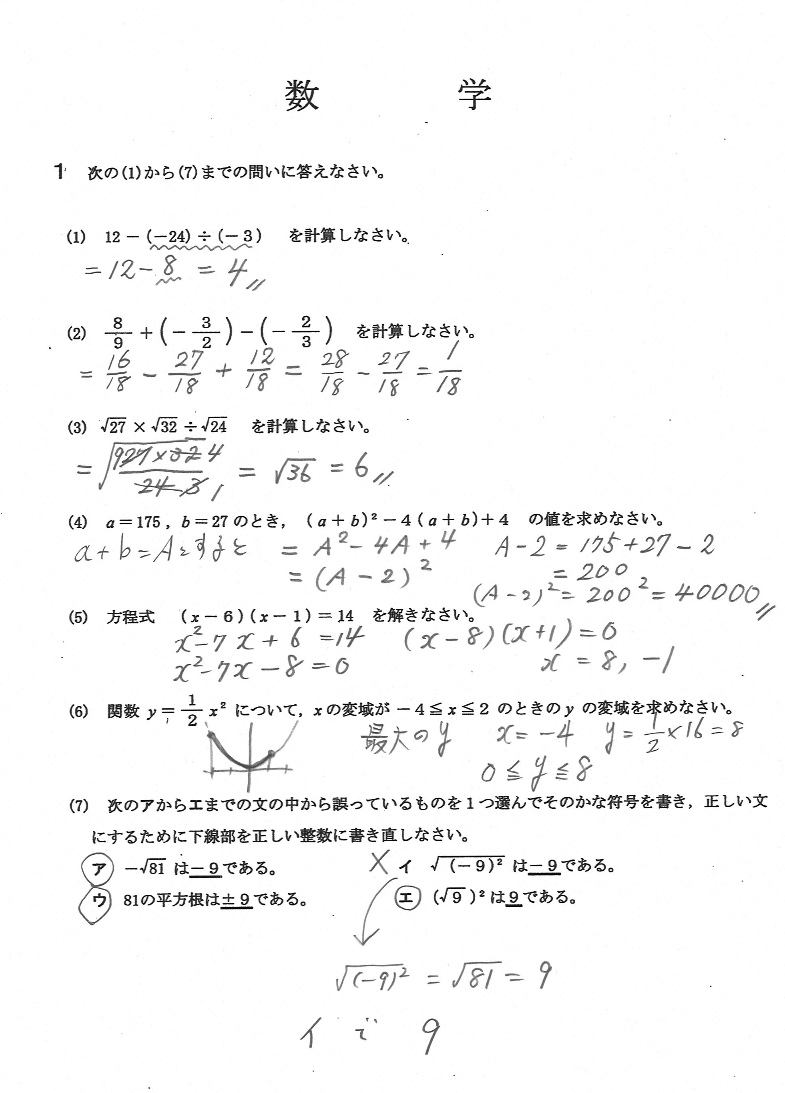 数 学
1 次の(1)から(7)までの問いに答えなさい。
(1) 12－(－24)÷(－3) を計算しなさい。
= 12 - 8 = 4 〃
(2) 8/9 + (－3/2) － (－2/3) を計算しなさい。
= 16/18 - 27/18 + 12/18 = 28/18 - 27/18 = 1/18
(3) √27 × √32 ÷ √24 を計算しなさい。
= √(9 27×32 4 / 24 3 1) = √36 = 6 〃
(4) a＝175，b＝27のとき，(a＋b)²－4(a＋b)＋4 の値を求めなさい。
a+b=Aとすると = A²-4A+4 A-2 = 175+27-2
= (A-2)² = 200
(A-2)² = 200² = 40000 〃
(5) 方程式 (x－6)(x－1)＝14 を解きなさい。
x²-7x+6=14 (x-8)(x+1)=0
x²-7x-8=0 x = 8, -1
(6) 関数 y＝1/2 x² について，xの変域が －4≦x≦2 のときのy の変域を求めなさい。
最大のy x=-4 y=1/2×16=8
0≦y≦8
(7) 次のアからエまでの文の中から誤っているものを1つ選んでそのかな符号を書き，正しい文
にするために下線部を正しい整数に書き直しなさい。
ア －√81 は－9である。 × イ √(－9)² は－9である。
ウ 81の平方根は±9である。 エ (√9)²は9である。
√(-9)² = √81 = 9
イで 9